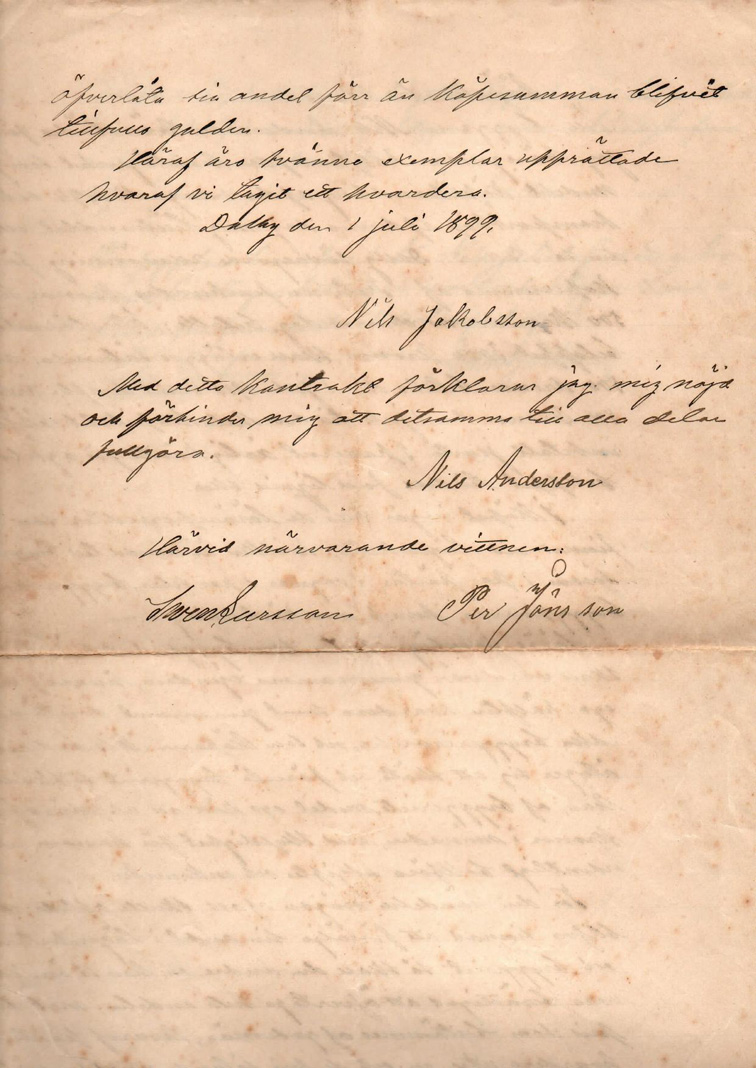 öfverlåta sin andel förr än köpesumman blifvit
tillfullo gulden.
Häraf äro tvänne exemplar upprättade
hvaraf vi tagit ett hvardera.
Dalby den 1 juli 1899.
Nils Jakobsson
Med detta kontrakt förklarar jag mig nöjd
och förbinder mig att detsamma till alla delar
fullgöra.
Nils Andersson
Härvid närvarande vittnen:
Sven Larsson Per Jönsson